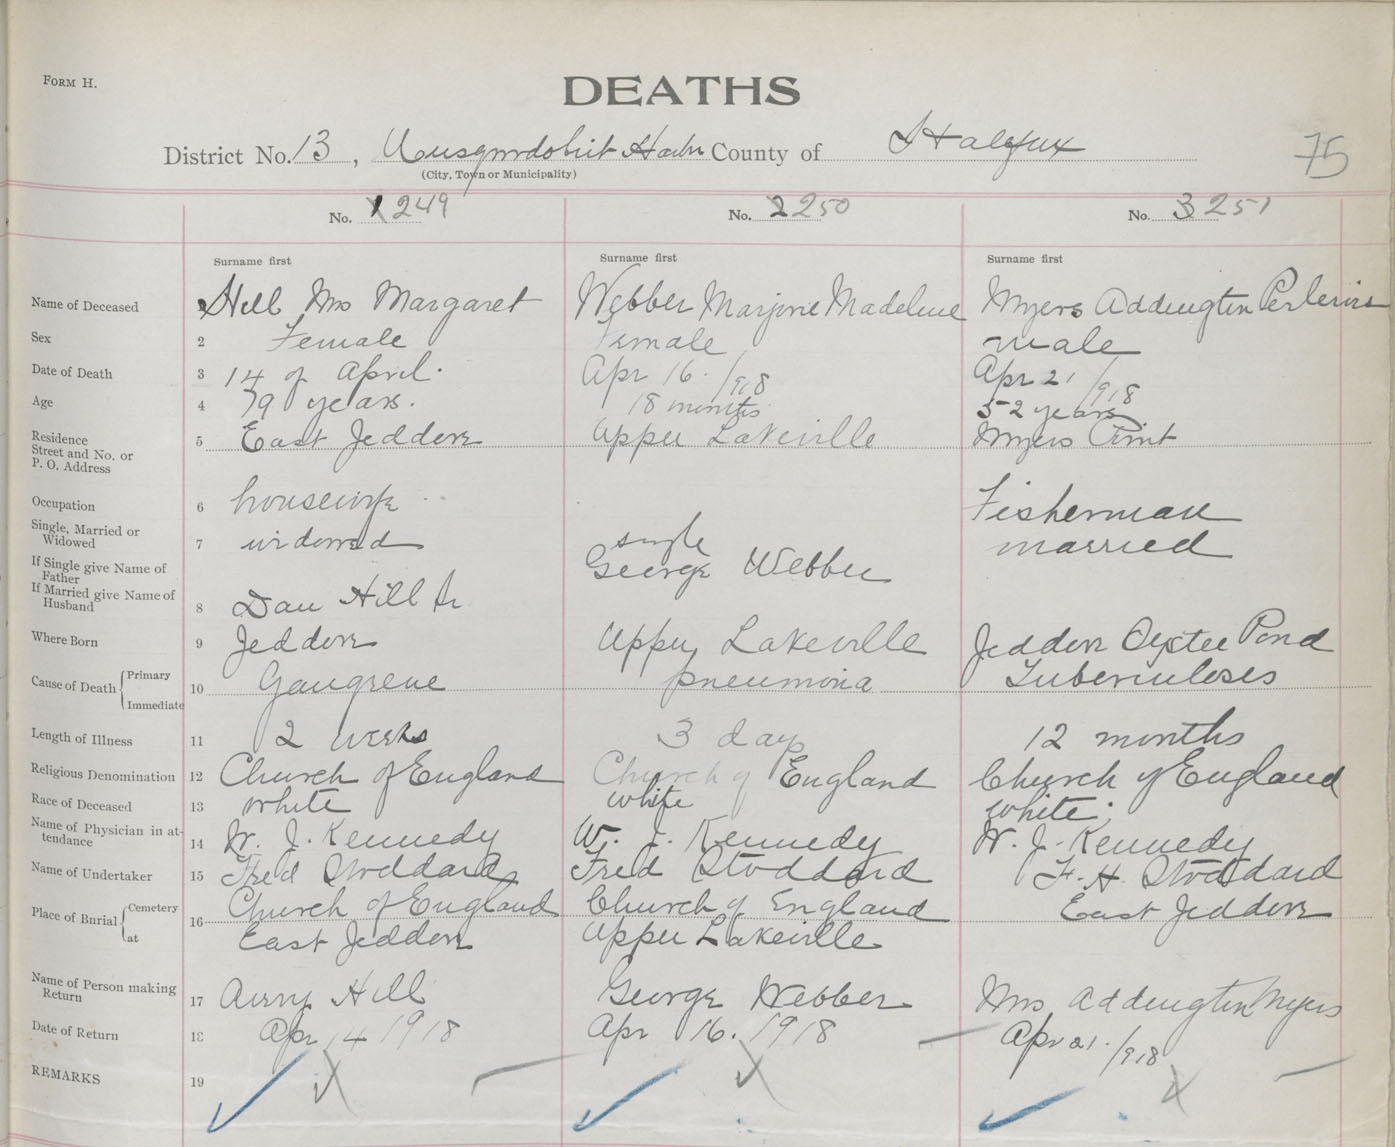 FORM H.
DEATHS
District No. 13, Musquodoboit Harbr County of Halifax
75
(City, Town or Municipality)
No. 1 249 No. 2 250 No. 3 251
Surname first Surname first Surname first
Name of Deceased Hill Mrs Margaret Webber Marjorie Madeline Myers Addington
Sex 2 Female Female male
Date of Death 3 14 of April. Apr 16. /918 Apr 21 /918
Age 4 79 years. 18 months 52 years
Residence
Street and No. or
P. O. Address 5 East Jeddore Upper Lakeville Myers Point
Occupation 6 housework Fisherman
Single, Married or
Widowed 7 widowed single married
If Single give Name of
Father George Webber
If Married give Name of
Husband 8 Dan Hill Sr
Where Born 9 Jeddore Upper Lakeville Jeddore Oyster Pond
Cause of Death Primary
Immediate 10 Gangrene pneumonia Tuberculoses
Length of Illness 11 2 weeks 3 days 12 months
Religious Denomination 12 Church of England Church of England Church of England
Race of Deceased 13 white white white
Name of Physician in at-
tendance 14 W. J. Kennedy W. J. Kennedy W. J. Kennedy
Name of Undertaker 15 Fred Stoddard Fred Stoddard F. H. Stoddard
Place of Burial Cemetery Church of England Church of England East Jeddore
at 16 East Jeddore Upper Lakeville
Name of Person making
Return 17 Avery Hill George Webber Mrs Addington Myers
Date of Return 18 Apr 14 1918 Apr 16. 1918 Apr 21. /918
REMARKS 19